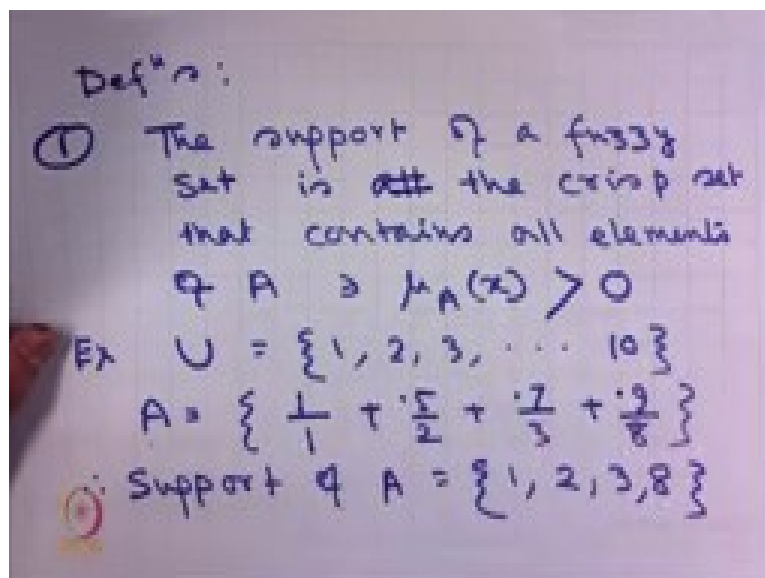 Defⁿs:
① The support of a fuzzy
set is the crisp set
that contains all elements
of A ∋ μ_A(x) > 0
Ex U = {1, 2, 3, ... 10}
A = { 1/1 + .5/2 + .7/3 + .9/8 }
∴ Support of A = {1, 2, 3, 8}